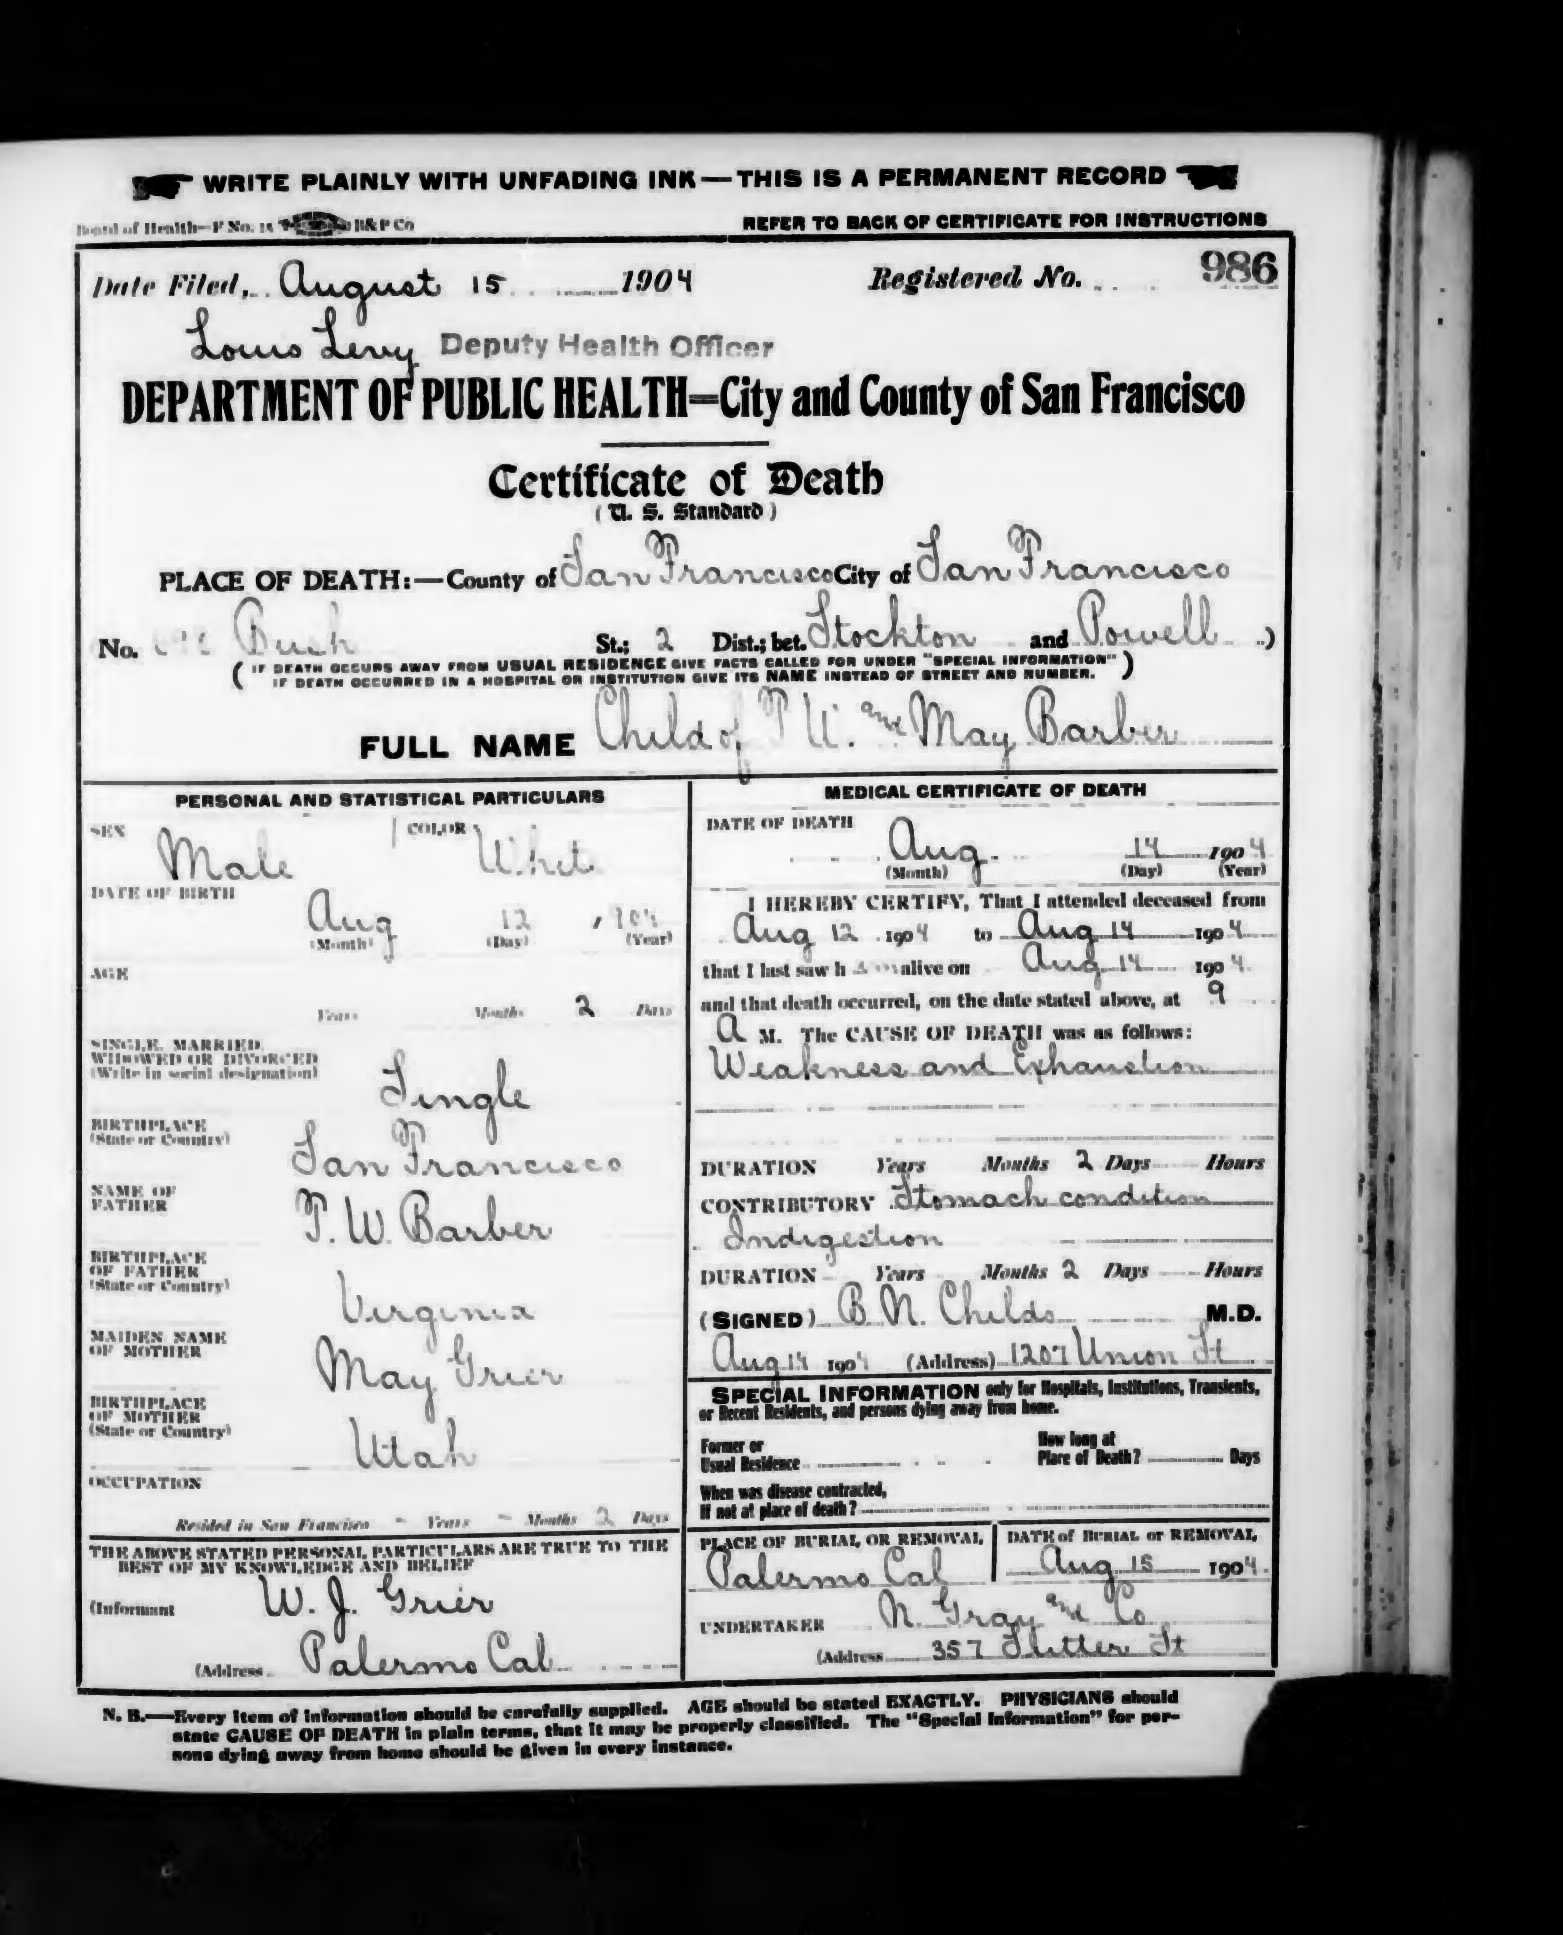 WRITE PLAINLY WITH UNFADING INK—THIS IS A PERMANENT RECORD
Board of Health—F No. 15 B&P Co
REFER TO BACK OF CERTIFICATE FOR INSTRUCTIONS
Date Filed, August 15 1904 Registered No. 986
Louis Levy Deputy Health Officer
DEPARTMENT OF PUBLIC HEALTH=City and County of San Francisco
Certificate of Death
(U. S. Standard)
PLACE OF DEATH:—County of San Francisco City of San Francisco
No. Bush St.; 2 Dist.; bet. Stockton and Powell )
( IF DEATH OCCURS AWAY FROM USUAL RESIDENCE GIVE FACTS CALLED FOR UNDER "SPECIAL INFORMATION" )
IF DEATH OCCURRED IN A HOSPITAL OR INSTITUTION GIVE ITS NAME INSTEAD OF STREET AND NUMBER.
FULL NAME Child of P. W. and May Barber
PERSONAL AND STATISTICAL PARTICULARS
SEX Male COLOR White
DATE OF BIRTH
Aug 12 1904
(Month) (Day) (Year)
AGE
Years Months 2 Days
SINGLE, MARRIED,
WIDOWED OR DIVORCED
(Write in social designation)
Single
BIRTHPLACE
(State or Country)
San Francisco
NAME OF
FATHER
P. W. Barber
BIRTHPLACE
OF FATHER
(State or Country)
Virginia
MAIDEN NAME
OF MOTHER
May Grier
BIRTHPLACE
OF MOTHER
(State or Country)
Utah
OCCUPATION
Resided in San Francisco - Years - Months 2 Days
THE ABOVE STATED PERSONAL PARTICULARS ARE TRUE TO THE
BEST OF MY KNOWLEDGE AND BELIEF
(Informant W. J. Grier
(Address Palermo Cal
MEDICAL CERTIFICATE OF DEATH
DATE OF DEATH
Aug. 14 1904
(Month) (Day) (Year)
I HEREBY CERTIFY, That I attended deceased from
Aug 12 1904 to Aug 14 1904
that I last saw h alive on Aug 14 1904
and that death occurred, on the date stated above, at 9
A M. The CAUSE OF DEATH was as follows:
Weakness and Exhaustion
DURATION Years Months 2 Days Hours
CONTRIBUTORY Stomach condition
Indigestion
DURATION Years Months 2 Days Hours
(SIGNED) B. N. Childs M.D.
Aug 14 1904 (Address) 1207 Union St
SPECIAL INFORMATION only for Hospitals, Institutions, Transients,
or Recent Residents, and persons dying away from home.
Former or
Usual Residence
How long at
Place of Death? Days
When was disease contracted,
If not at place of death?
PLACE OF BURIAL OR REMOVAL
Palermo Cal
DATE of BURIAL or REMOVAL,
Aug 15 1904
UNDERTAKER N. Gray and Co
(Address 357 Sutter St
N. B.—Every item of information should be carefully supplied. AGE should be stated EXACTLY. PHYSICIANS should
state CAUSE OF DEATH in plain terms, that it may be properly classified. The "Special Information" for per-
sons dying away from home should be given in every instance.